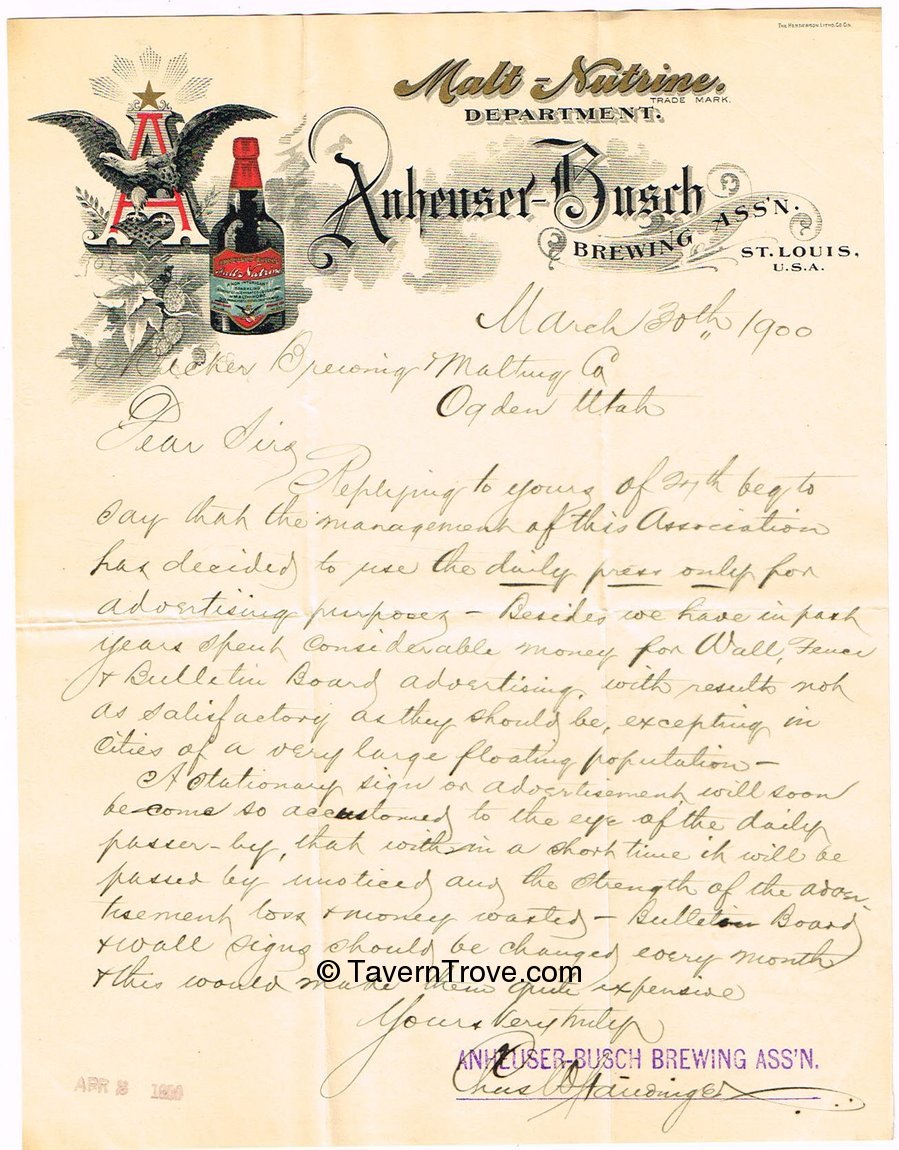 THE HENDERSON LITHO. CO. CIN.
Malt-Nutrine.
TRADE MARK.
DEPARTMENT.
Anheuser-Busch
BREWING ASS'N.
ST. LOUIS,
U.S.A.
A
Malt-Nutrine
March 30th 1900
Becker Brewing & Malting Co
Ogden Utah
Dear Sirs
Replying to yours of 27th beg to
say that the management of this Association
has decided to use the daily press only for
advertising purposes - Besides we have in past
years spent considerable money for Wall, Fence
& Bulletin Board advertising, with results not
as satisfactory as they should be, excepting in
cities of a very large floating population -
A stationary sign or advertisement will soon
become so accustomed to the eye of the daily
passer-by, that within a short time it will be
passed by unoticed and the strength of the adver-
tisement loss & money wasted - Bulletin Board
& wall signs should be changed every month
& this would make them quite expensive
Yours Very truly
ANHEUSER-BUSCH BREWING ASS'N.
Chas
APR 3 1900
© TavernTrove.com